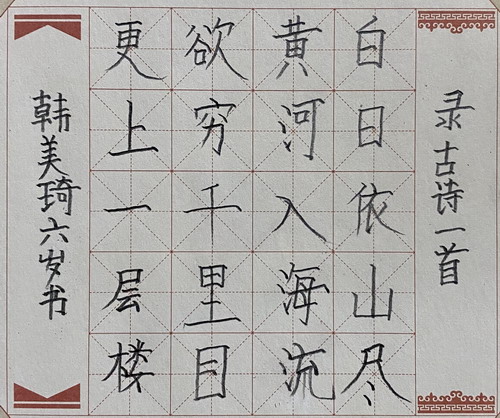 录古诗一首
白日依山尽
黄河入海流
欲穷千里目
更上一层楼
韩美琦六岁书